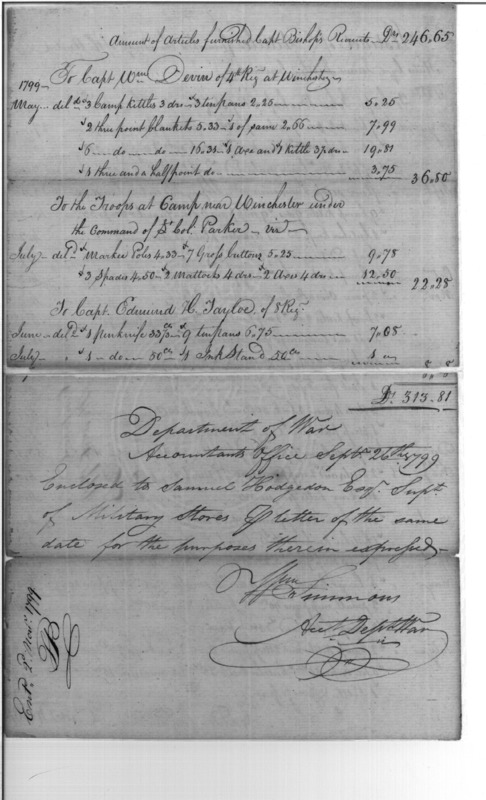 Amount of Articles furnished Capt Bishops Recruits Drs 246.65
To Capt Wm Devin of 4th Reg at Winchester
1799
May del'd 3 Camp Kettles 3 drs 3 tin pans 2.25 5.25
2 three point blankets 5.33 1 of same 2.66 7.99
6 do do 16.31 1 axe and 1 kettle 3 drs 19.81
1 three and a half point do 3.75
36.80
To the Troops at Camp near Winchester under
the Command of Lt Col. Parker viz
July del'd Markee Poles 4.33 7 Gross buttons 5.25 9.78
3 Spades 4.50 2 Mattocks 4 drs 2 Axes 4 drs 12.50
22.28
To Capt. Edmund H. Tayloe of 8 Reg.
June del'd 1 penknife 33 cts 9 tin pans 6.75 7.08
July 1 do 50 cts 1 Ink Stand 50 cts 1
8.
Drs 313.81
Department of War
Accountants Office Septr 26th 1799
Enclosed to Samuel Hodgdon Esqr. Supt.
of Military Stores P letter of the same
date for the purposes therein expressed
Wm Simmons
Acct. Dept War
Ent. Novr. 1799